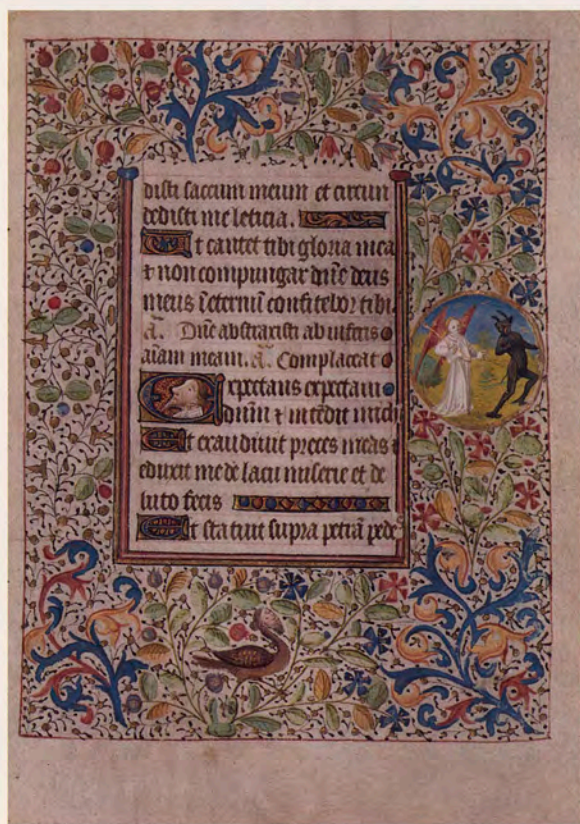 disti saccum meum et circun
dedisti me leticia.
Ut cantet tibi gloria mea
⁊ non compungar dñe deus
meus ĩeternũ confitebor tibi
A. Dñe abstraxisti ab inferis
aĩam meam. A. Complaceat
Expectans expectaui
dñm ⁊ intẽdit michi
Et exaudiuit preces meas ⁊
eduxit me de lacu miserie et de
luto fecis
Et statuit supra petrã pedeˢ